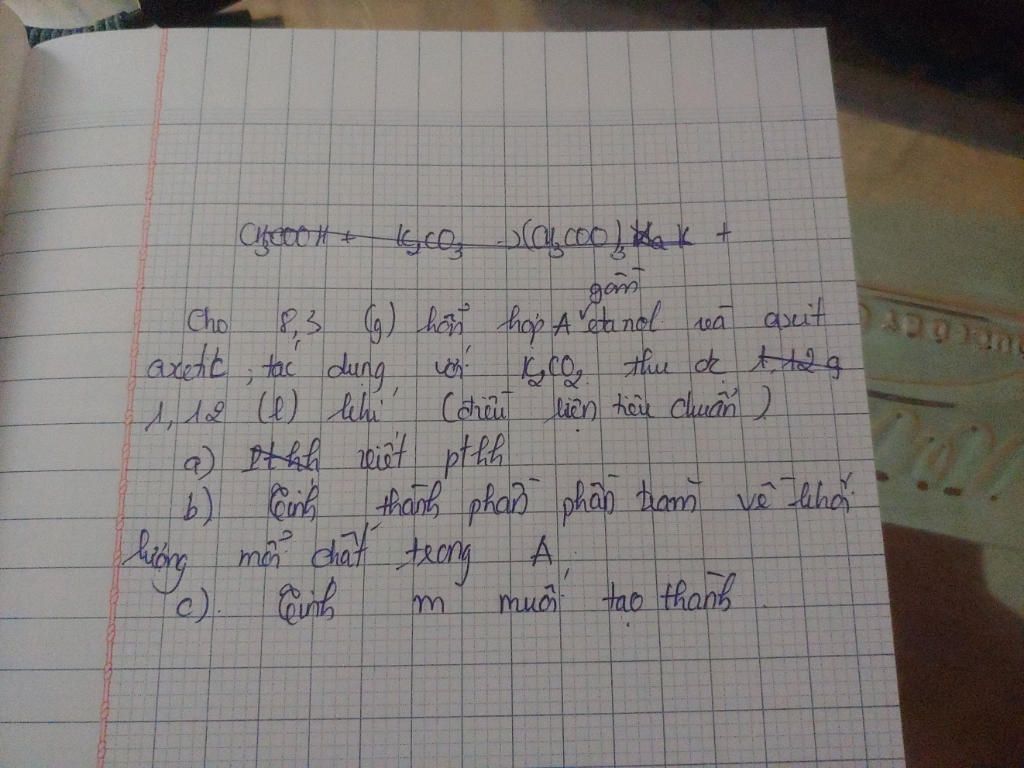 CH3COOH + K2CO3 → (CH3COO)3 K +
gồm
Cho 8,3 (g) hỗn hợp A etanol và axit
axetic, tác dụng với K2CO2 thu đc 1,12 g
1,12 (l) khí (điều kiện tiêu chuẩn)
a) PtHh viết pthh
b) Tính thành phần phần trăm về khối
lượng mỗi chất trong A.
c). Tính m muối tạo thành.